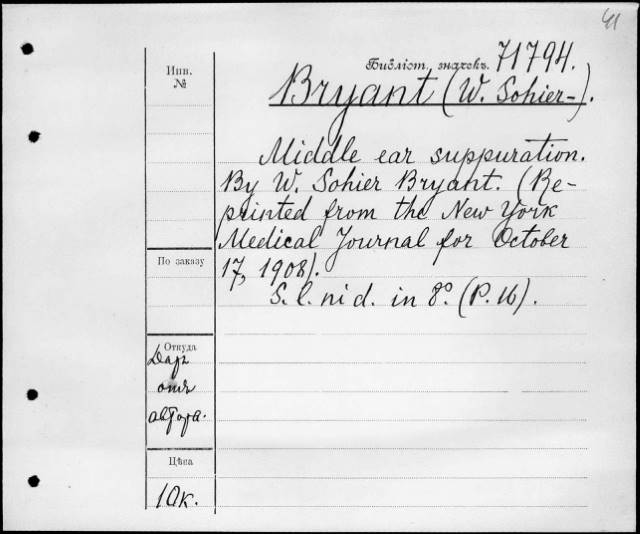 41
Библіот. значекъ. 71794.
Инв.
№
Bryant (W. Sohier-).
Middle ear suppuration.
By W. Sohier Bryant. (Re-
printed from the New York
Medical Journal for October
17, 1908).
S. l. ni d. in 8º. (P. 16).
По заказу
Откуда
Даръ
отъ
автора.
Цѣна
10к.